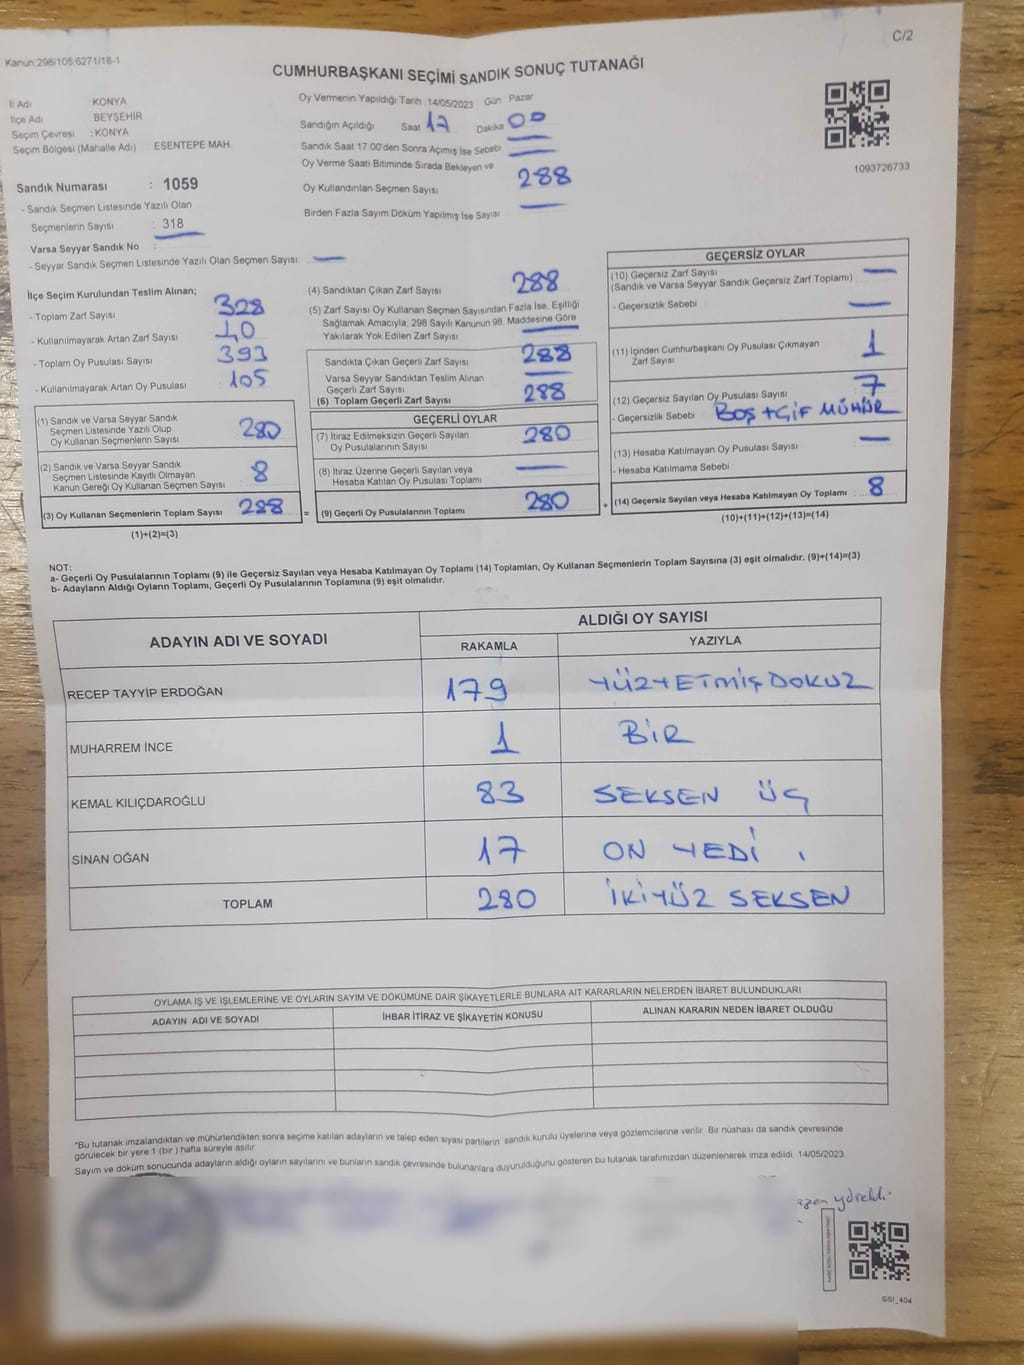 C/2
Kanun:298/105.6271/18-1
CUMHURBAŞKANI SEÇİMİ SANDIK SONUÇ TUTANAĞI
İl Adı KONYA
İlçe Adı BEYŞEHİR
Seçim Çevresi : KONYA
Seçim Bölgesi (Mahalle Adı) ESENTEPE MAH.
Sandık Numarası : 1059
- Sandık Seçmen Listesinde Yazılı Olan
Seçmenlerin Sayısı : 318
Varsa Seyyar Sandık No :
- Seyyar Sandık Seçmen Listesinde Yazılı Olan Seçmen Sayısı: —
Oy Vermenin Yapıldığı Tarih 14/05/2023 Gün Pazar
Sandığın Açıldığı Saat 17 Dakika 00
Sandık Saat 17.00'den Sonra Açımış İse Sebebi —
Oy Verme Saati Bitiminde Sırada Bekleyen ve —
Oy Kullandırılan Seçmen Sayısı 288
Birden Fazla Sayım Döküm Yapılmış İse Sayısı —
1093726733
İlçe Seçim Kurulundan Teslim Alınan;
- Toplam Zarf Sayısı 328
- Kullanılmayarak Artan Zarf Sayısı 40
- Toplam Oy Pusulası Sayısı 393
- Kullanılmayarak Artan Oy Pusulası 105
(1) Sandık ve Varsa Seyyar Sandık
Seçmen Listesinde Yazılı Olup
Oy Kullanan Seçmenlerin Sayısı 280
(2) Sandık ve Varsa Seyyar Sandık
Seçmen Listesinde Kayıtlı Olmayan
Kanun Gereği Oy Kullanan Seçmen Sayısı 8
(3) Oy Kullanan Seçmenlerin Toplam Sayısı 288 =
(1)+(2)=(3)
(4) Sandıktan Çıkan Zarf Sayısı 288
(5) Zarf Sayısı Oy Kullanan Seçmen Sayısından Fazla İse, Eşitliği
Sağlamak Amacıyla, 298 Sayılı Kanunun 98. Maddesine Göre
Yakılarak Yok Edilen Zarf Sayısı —
Sandıkta Çıkan Geçerli Zarf Sayısı 288
Varsa Seyyar Sandıktan Teslim Alınan
Geçerli Zarf Sayısı —
(6) Toplam Geçerli Zarf Sayısı 288
GEÇERLİ OYLAR
(7) İtiraz Edilmeksizin Geçerli Sayılan
Oy Pusulalarının Sayısı 280
(8) İtiraz Üzerine Geçerli Sayılan veya
Hesaba Katılan Oy Pusulası Toplamı —
(9) Geçerli Oy Pusulalarının Toplamı 280 +
GEÇERSİZ OYLAR
(10) Geçersiz Zarf Sayısı
(Sandık ve Varsa Seyyar Sandık Geçersiz Zarf Toplamı) —
- Geçersizlik Sebebi —
(11) İçinden Cumhurbaşkanı Oy Pusulası Çıkmayan
Zarf Sayısı 1
(12) Geçersiz Sayılan Oy Pusulası Sayısı 7
- Geçersizlik Sebebi BOŞ+ÇİF MÜHÜR
(13) Hesaba Katılmayan Oy Pusulası Sayısı —
- Hesaba Katılmama Sebebi :
(14) Geçersiz Sayılan veya Hesaba Katılmayan Oy Toplamı 8
(10)+(11)+(12)+(13)=(14)
NOT:
a- Geçerli Oy Pusulalarının Toplamı (9) ile Geçersiz Sayılan veya Hesaba Katılmayan Oy Toplamı (14) Toplamları, Oy Kullanan Seçmenlerin Toplam Sayısına (3) eşit olmalıdır. (9)+(14)=(3)
b- Adayların Aldığı Oyların Toplamı, Geçerli Oy Pusulalarının Toplamına (9) eşit olmalıdır.
ADAYIN ADI VE SOYADI ALDIĞI OY SAYISI
RAKAMLA YAZIYLA
RECEP TAYYİP ERDOĞAN 179 YÜZYETMİŞDOKUZ
MUHARREM İNCE 1 BİR
KEMAL KILIÇDAROĞLU 83 SEKSEN ÜÇ
SİNAN OĞAN 17 ON YEDİ
TOPLAM 280 İKİYÜZ SEKSEN
OYLAMA İŞ VE İŞLEMLERİNE VE OYLARIN SAYIM VE DÖKÜMÜNE DAİR ŞİKAYETLERLE BUNLARA AİT KARARLARIN NELERDEN İBARET BULUNDUKLARI
ADAYIN ADI VE SOYADI İHBAR İTİRAZ VE ŞİKAYETİN KONUSU ALINAN KARARIN NEDEN İBARET OLDUĞU
*Bu tutanak imzalandıktan ve mühürlendikten sonra seçime katılan adayların ve talep eden siyasi partilerin sandık kurulu üyelerine veya gözlemcilerine verilir. Bir nüshası da sandık çevresinde
görülecek bir yere 1 (bir) hafta süreyle asılır.
Sayım ve döküm sonucunda adayların aldığı oyların sayılarını ve bunların sandık çevresinde bulunanlara duyurulduğunu gösteren bu tutanak tarafımızdan düzenlenerek imza edildi. 14/05/2023
SSI_404